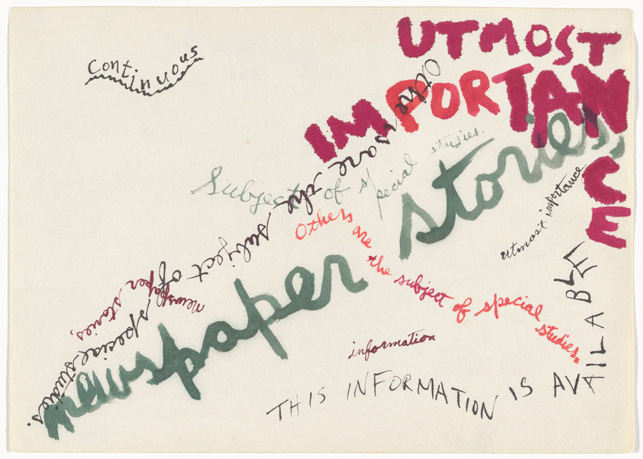 continuous
UTMOST
IMPORTANCE
Others are the subject of special studies.
Subject of special studies.
newspaper stories,
utmost importance
Others are the subject of special studies.
newspaper stories,
information
THIS INFORMATION IS AVAILABLE